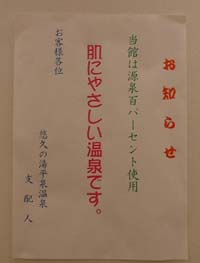 お知らせ
当館は源泉百パーセント使用
肌にやさしい温泉です。
お客様各位
悠久の湯平泉温泉
支配人